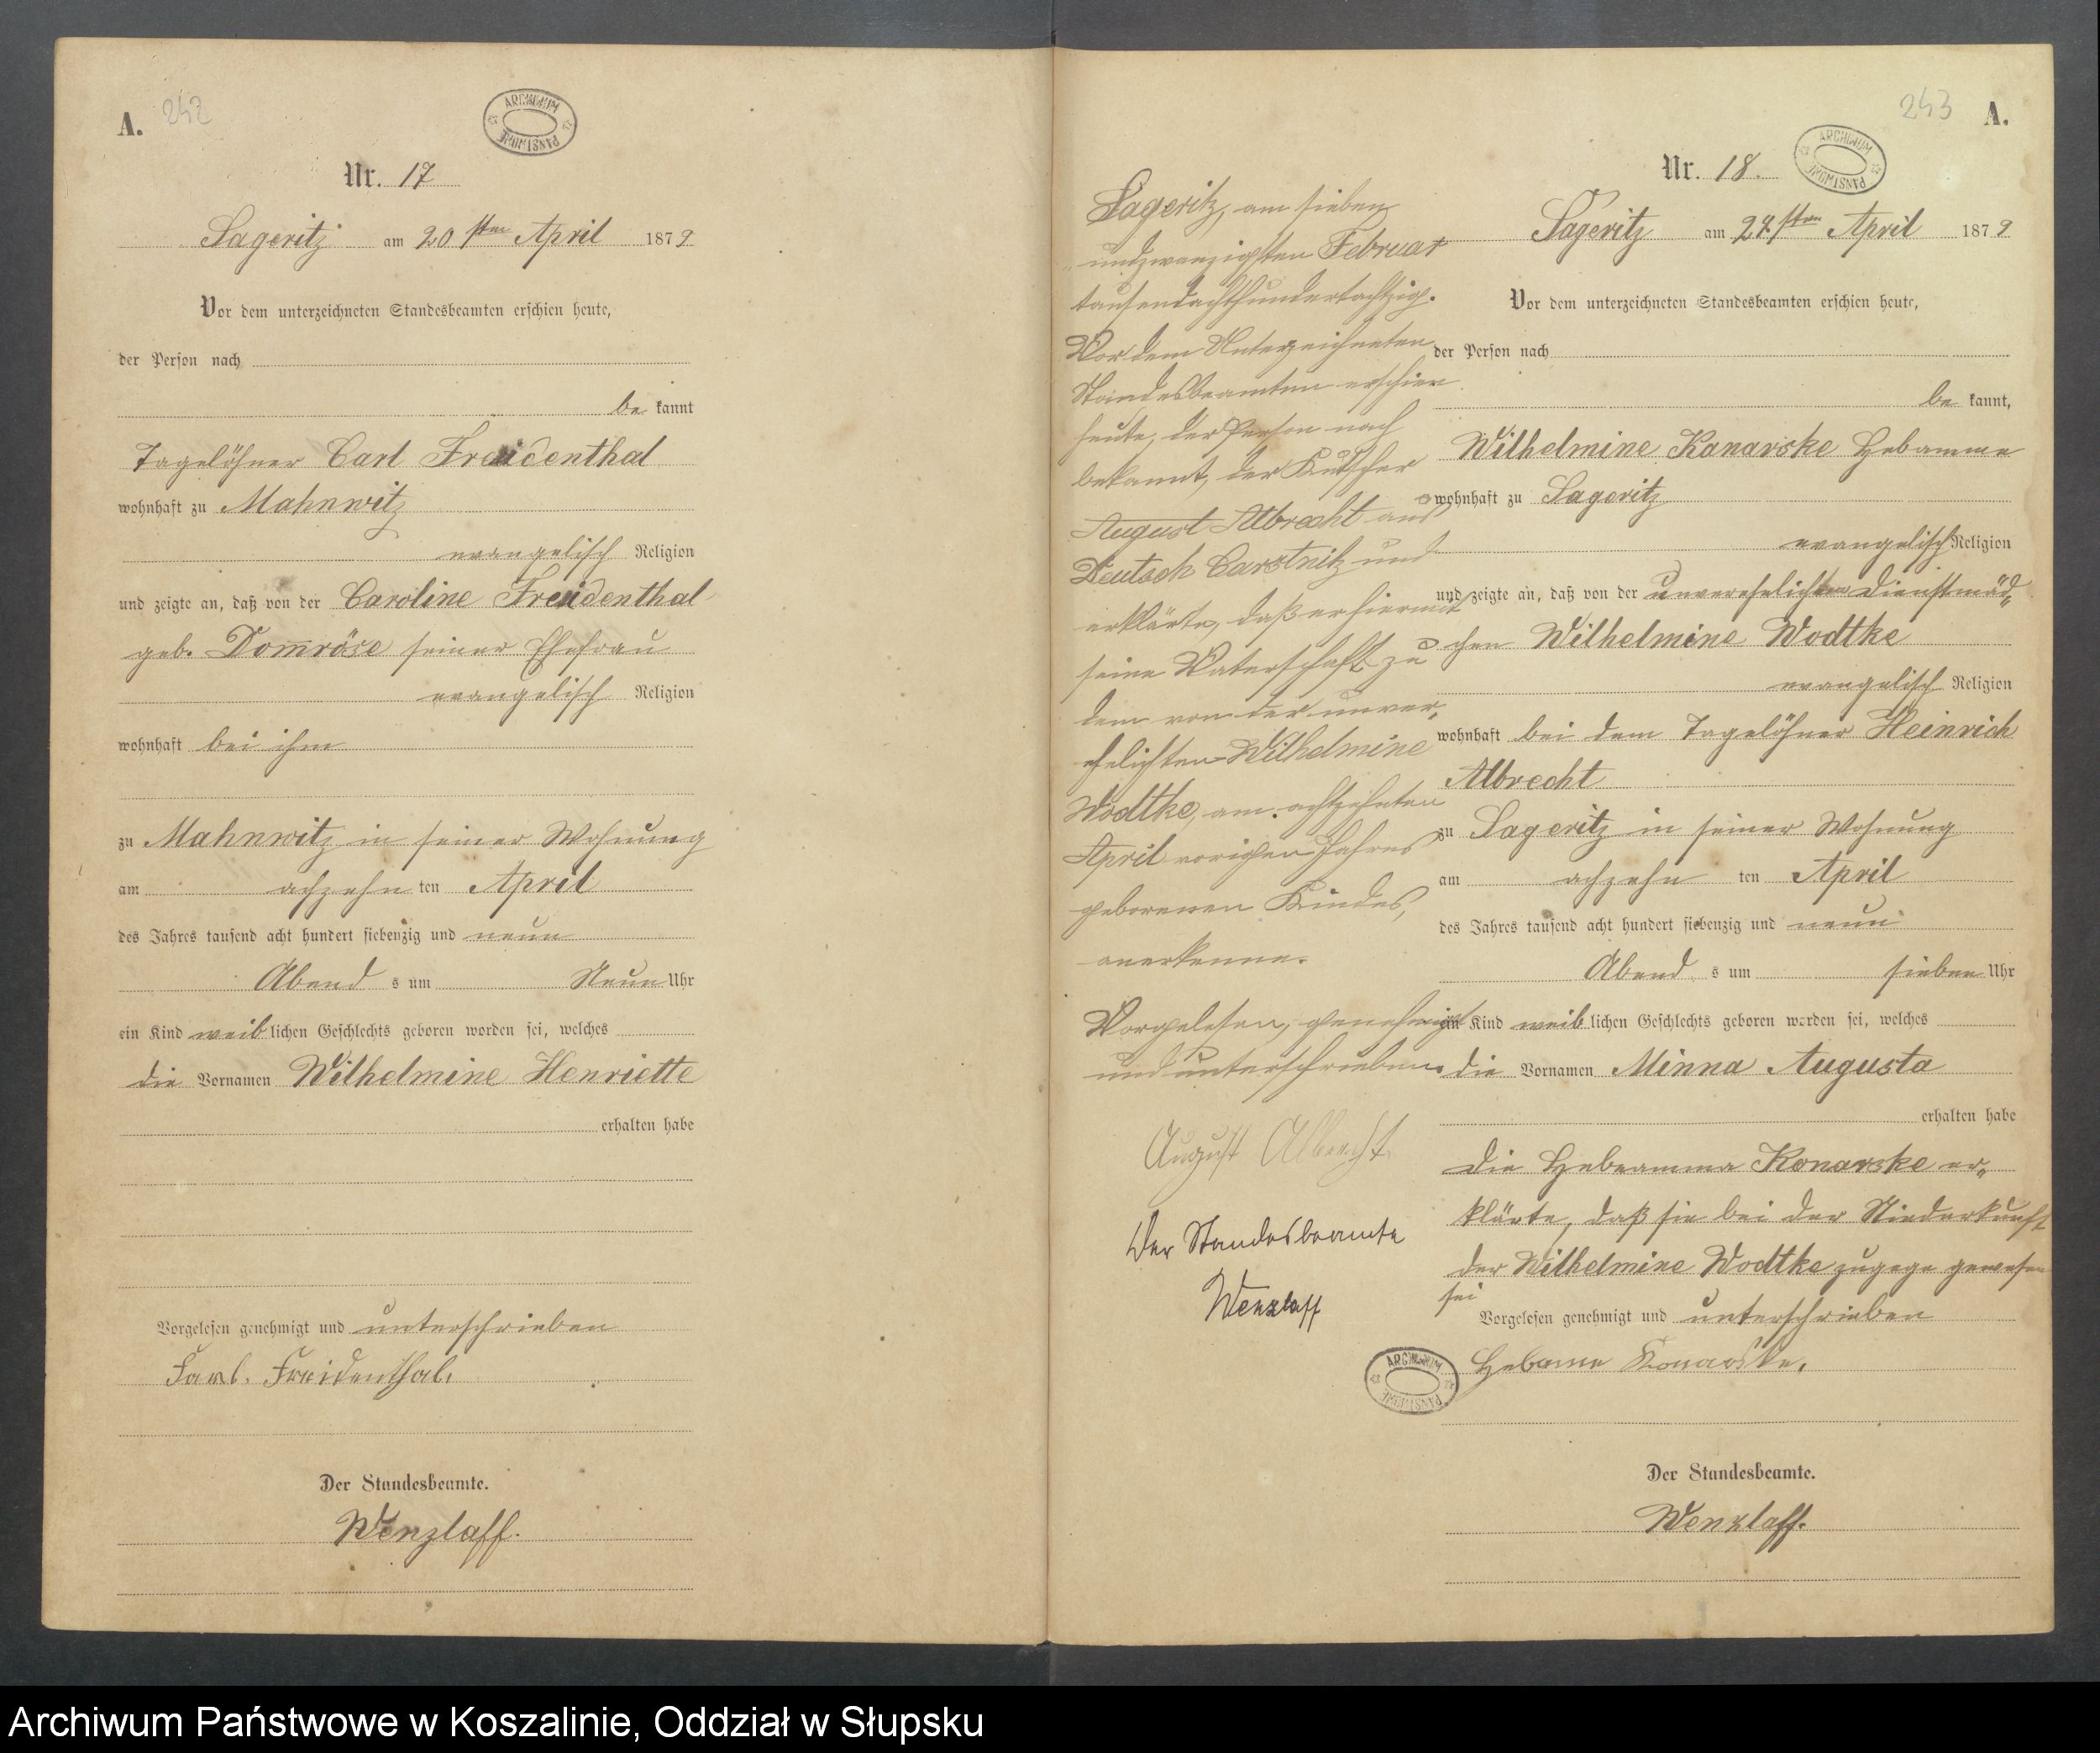 A. 242
ARCHIWUM PAŃSTWOWE
Nr. 17
Sageritz am 20 sten April 1879
Vor dem unterzeichneten Standesbeamten erschien heute,
der Person nach
be kannt
Tagelöhner Carl Freidenthal
wohnhaft zu Mahnwitz
evangelisch Religion
und zeigte an, daß von der Caroline Freidenthal
geb. Dom̄röse seiner Ehefrau
evangelisch Religion
wohnhaft bei ihm
zu Mahnwitz in seiner Wohnung
am achzehn ten April
des Jahres tausend acht hundert siebenzig und neun
Abend s um Neun Uhr
ein Kind weib lichen Geschlechts geboren worden sei, welches
die Vornamen Wilhelmine Henriette
erhalten habe
Vorgelesen genehmigt und unterschrieben
Karl. Freidenthal.
Der Standesbeamte.
Wenzlaff.
243 A.
ARCHIWUM PAŃSTWOWE
Nr. 18.
Sageritz am sten April 1879
Vor dem unterzeichneten Standesbeamten erschien heute,
der Person nach
be kannt,
Wilhelmine Konarske Hebamme
wohnhaft zu Sageritz
evangelisch Religion
und zeigte an, daß von der unverehelichten Dienstmäd„
chen Wilhelmine Wodtke
evangelisch Religion
wohnhaft bei dem Tagelöhner Heinrich
Albrecht
zu Sageritz in seiner Wohnung
am achzehn ten April
des Jahres tausend acht hundert siebenzig und neun
Abend s um sieben Uhr
ein Kind weib lichen Geschlechts geboren worden sei, welches
die Vornamen Minna Augusta
erhalten habe
Die Hebeamme Konarske er„
klärte, daß sie bei der Niederkunft
der Wilhelmine Wodtke zugege gewesen
sei
Vorgelesen genehmigt und unterschrieben
Hebamme Konarske.
Der Standesbeamte.
Wenzlaff.
Sageritz, am sieben
undzwanzigsten Februar
tausendachthundertachtzig.
Vor dem Unterzeichneten
Standesbeamten erschien
heute, der Person nach
bekannt, der Kutscher
August Albrecht aus
Deutsch Carstnitz und
erklärte, daß er hiermit
seine Vaterschaft zu
dem von der unver„
ehelichten Wilhelmine
Wodtke, am achtzehnten
April vorigen Jahres
geborenen Kindes,
anerkenne.
Vorgelesen, genehmigt
und unterschrieben.
August Albrecht.
Der Standesbeamte
Wenzlaff
ARCHIWUM PAŃSTWOWE
Archiwum Państwowe w Koszalinie, Oddział w Słupsku